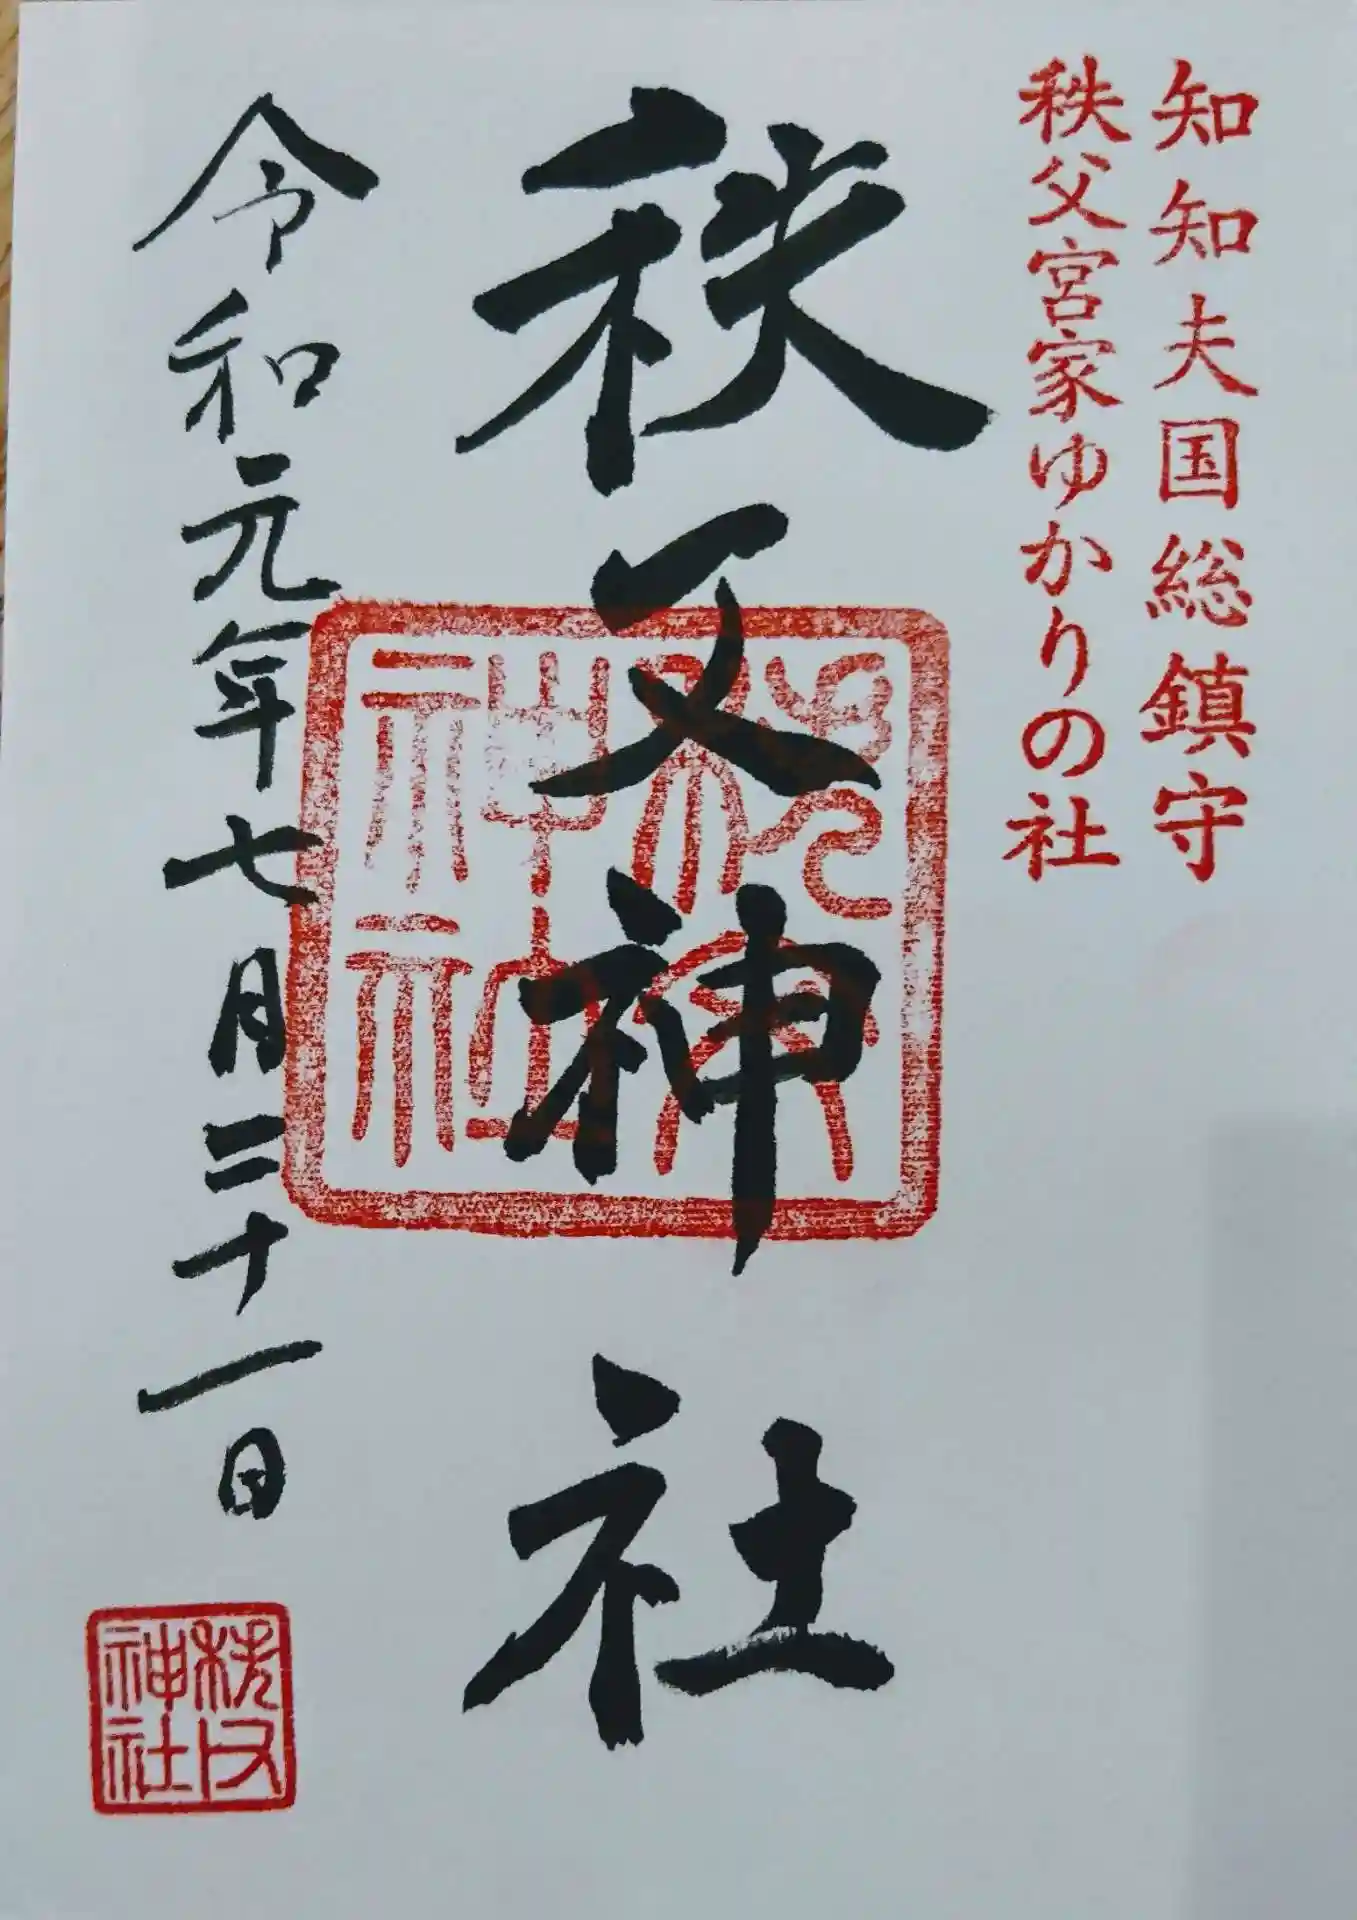 知知夫国総鎮守
秩父宮家ゆかりの社
秩父神社
秩父神社
令和元年七月二十一日
秩父神社